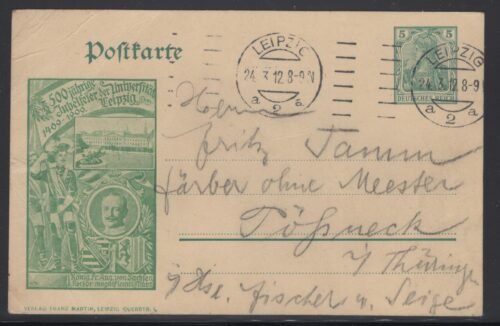 Postkarte
LEIPZIG
24.3.12.8-9 N
a 2 a
5 5
DEUTSCHES REICH
LEIPZIG
24.3.12.8-9
a 2 a
500 jährige
Jubelfeier der Universität
Leipzig
1409 1909
König Fr. Aug. von Sachsen
Rector magnificentissimus
VERLAG FRANZ MARTIN, LEIPZIG
Herrn
Fritz Tamm
Färber ohne Meester
Pößneck
i/ Thüringe
Fischer u. Seige